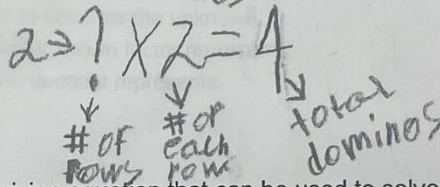 2⇒ ? × 2 = 4
# of rows
# of each row
total dominos
equation that can be used to solve